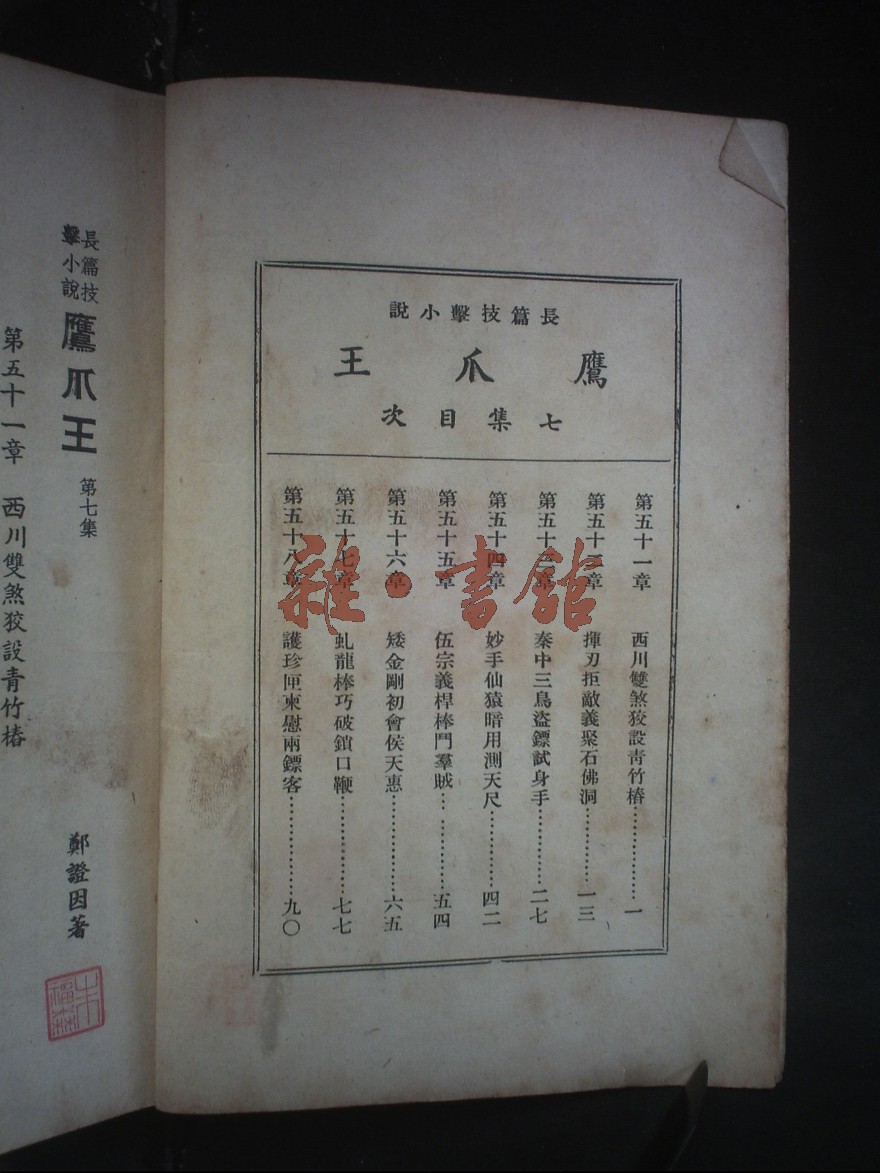 長篇技擊小說
鷹爪王
七集目次
第五十一章 西川雙煞狡設青竹樁………………一
第五十二章 揮刃拒敵義聚石佛洞………………一三
第五十三章 秦中三鳥盜鏢試身手………………二七
第五十四章 妙手仙猿暗用測天尺………………四二
第五十五章 伍宗義桿棒鬥羣賊………………五四
第五十六章 矮金剛初會侯天惠………………六五
第五十七章 虬龍棒巧破鎖口鞭………………七七
第五十八章 護珍匣柬慰兩鏢客………………九〇
長篇技
擊小說
鷹爪王
第七集
鄭證因著
第五十一章 西川雙煞狡設青竹樁
雜·書館